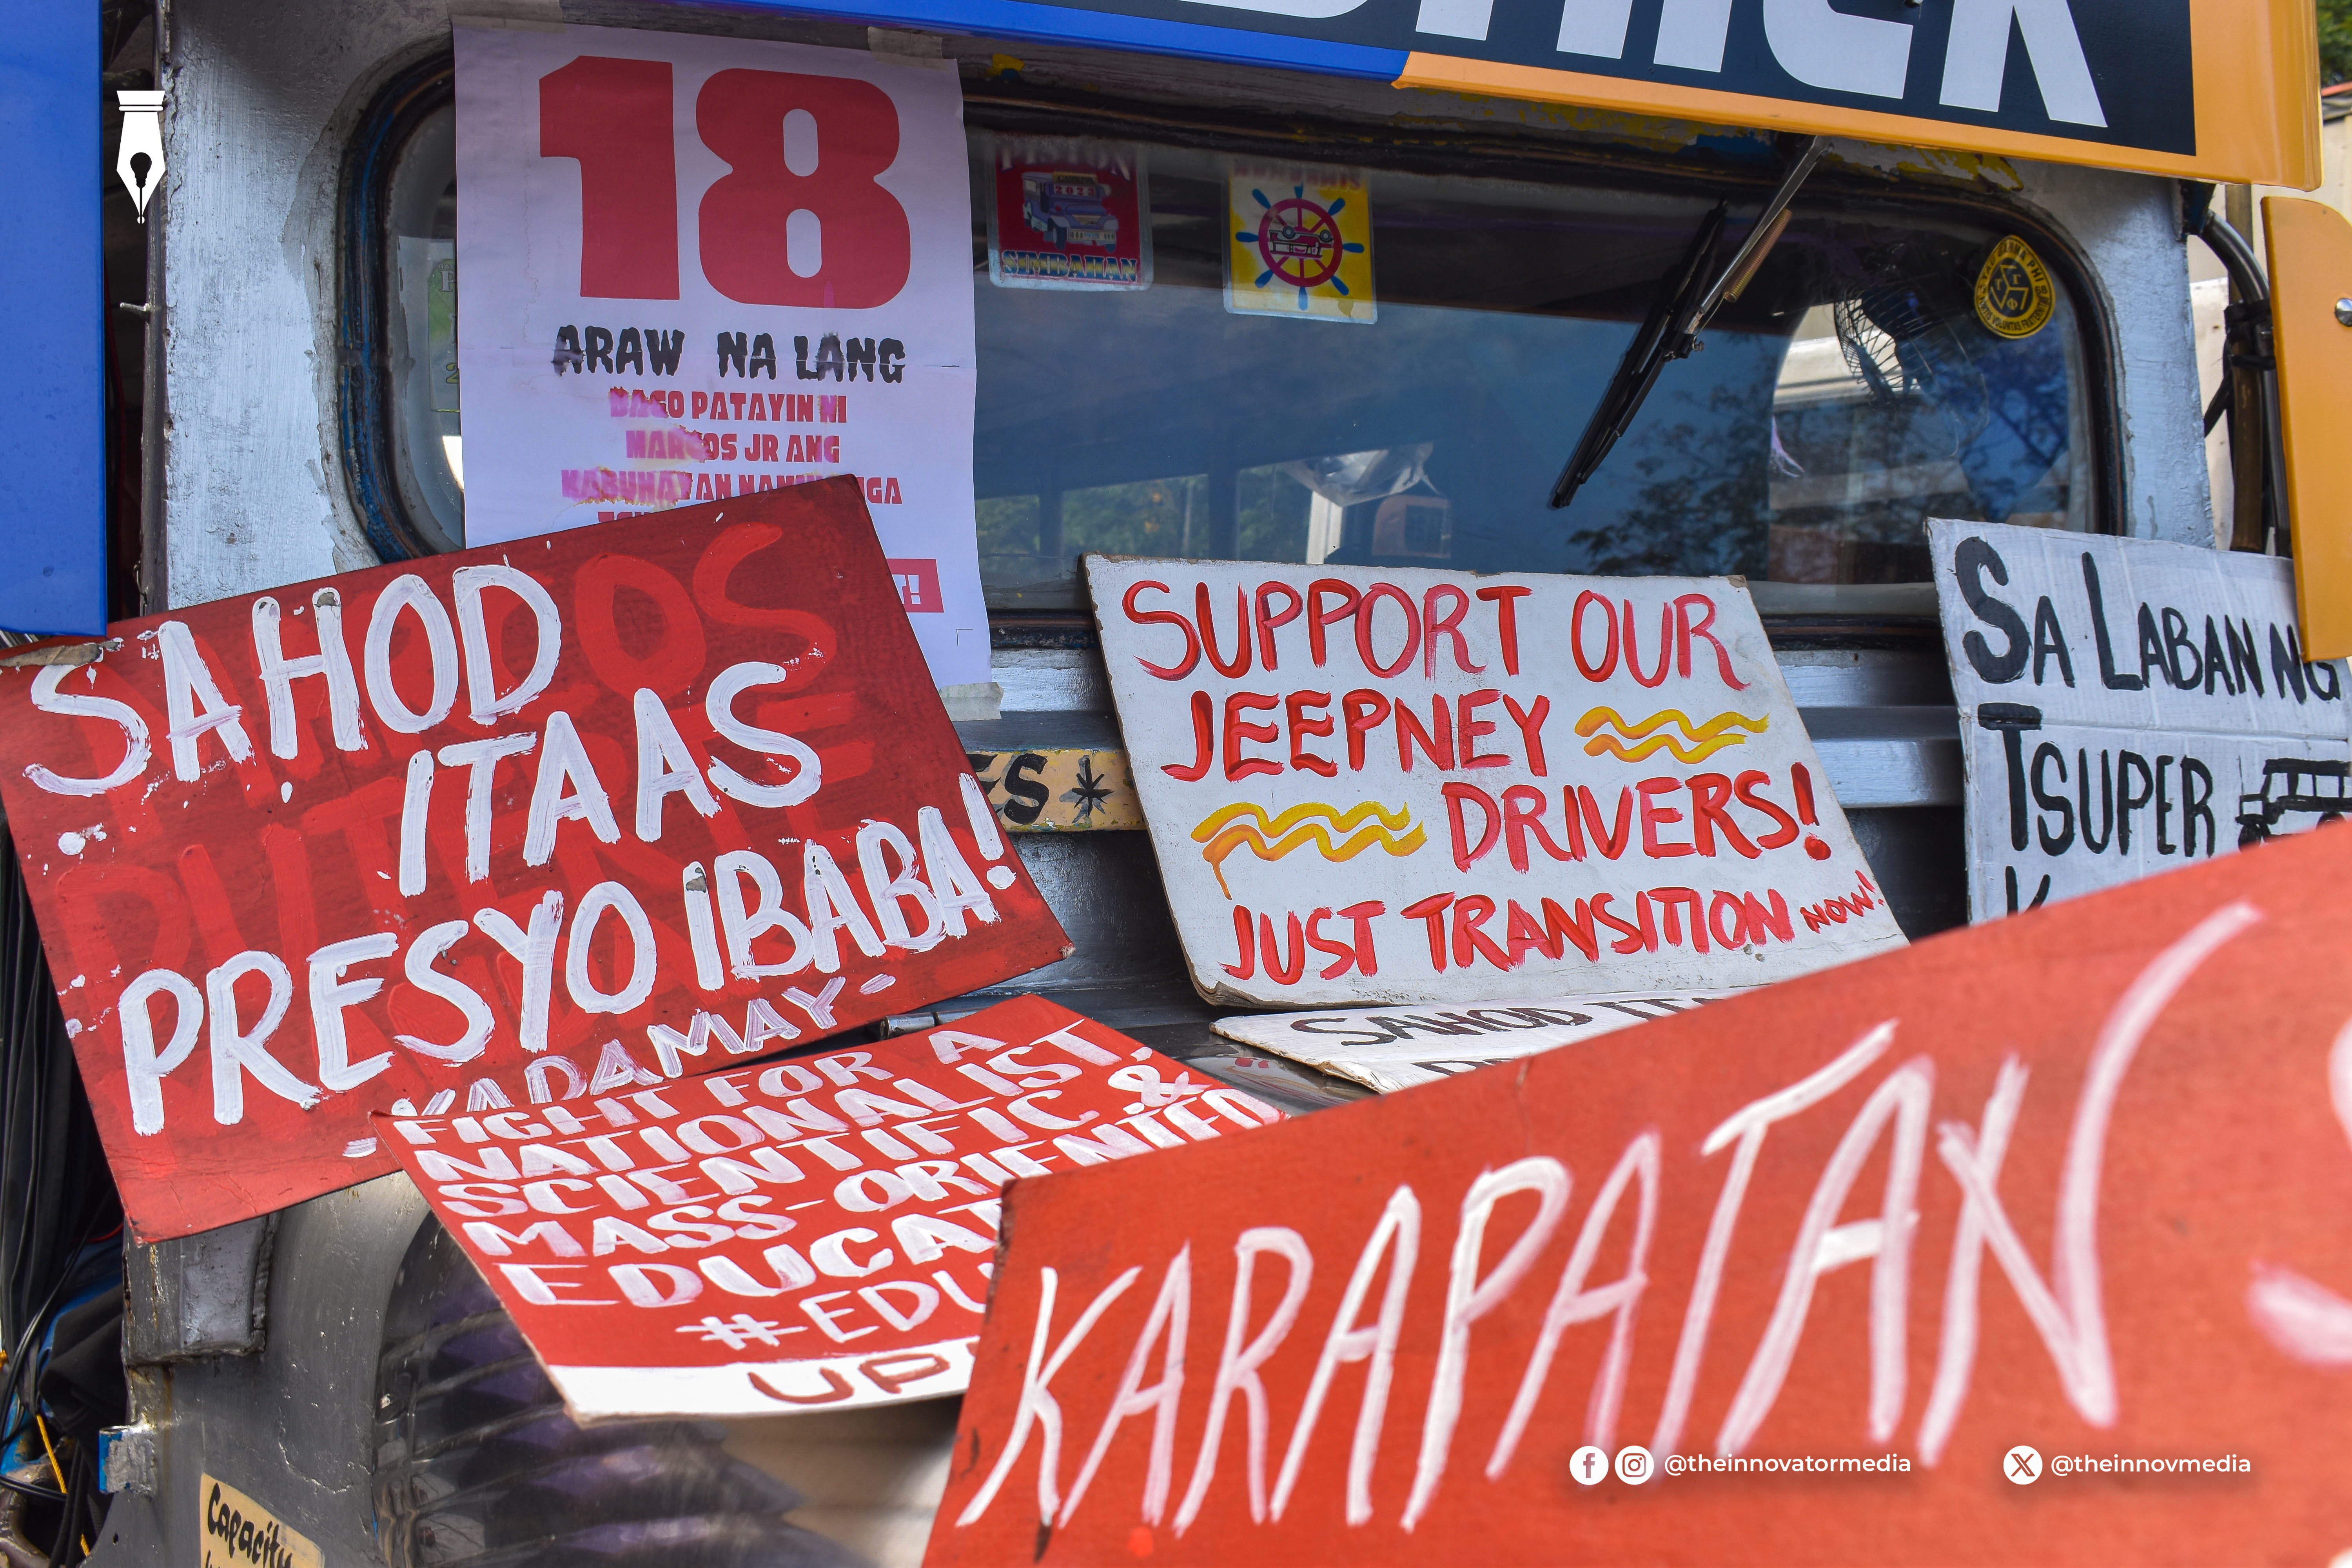 18
ARAW NA LANG
BAGO PATAYIN NI
MARCOS JR ANG
KABUHAYAN
2023
SIMBAHAN
SAHOD
ITAAS
PRESYO IBABA!
KADAMAY-
SUPPORT OUR
JEEPNEY
DRIVERS!
JUST TRANSITION NOW!
SA LABAN NG
TSUPER
SAHOD
FIGHT FOR A
NATIONALIST,
SCIENTIFIC &
MASS-ORIENTED
KARAPATAN
Capacity
@theinnovatormedia
@theinnovmedia